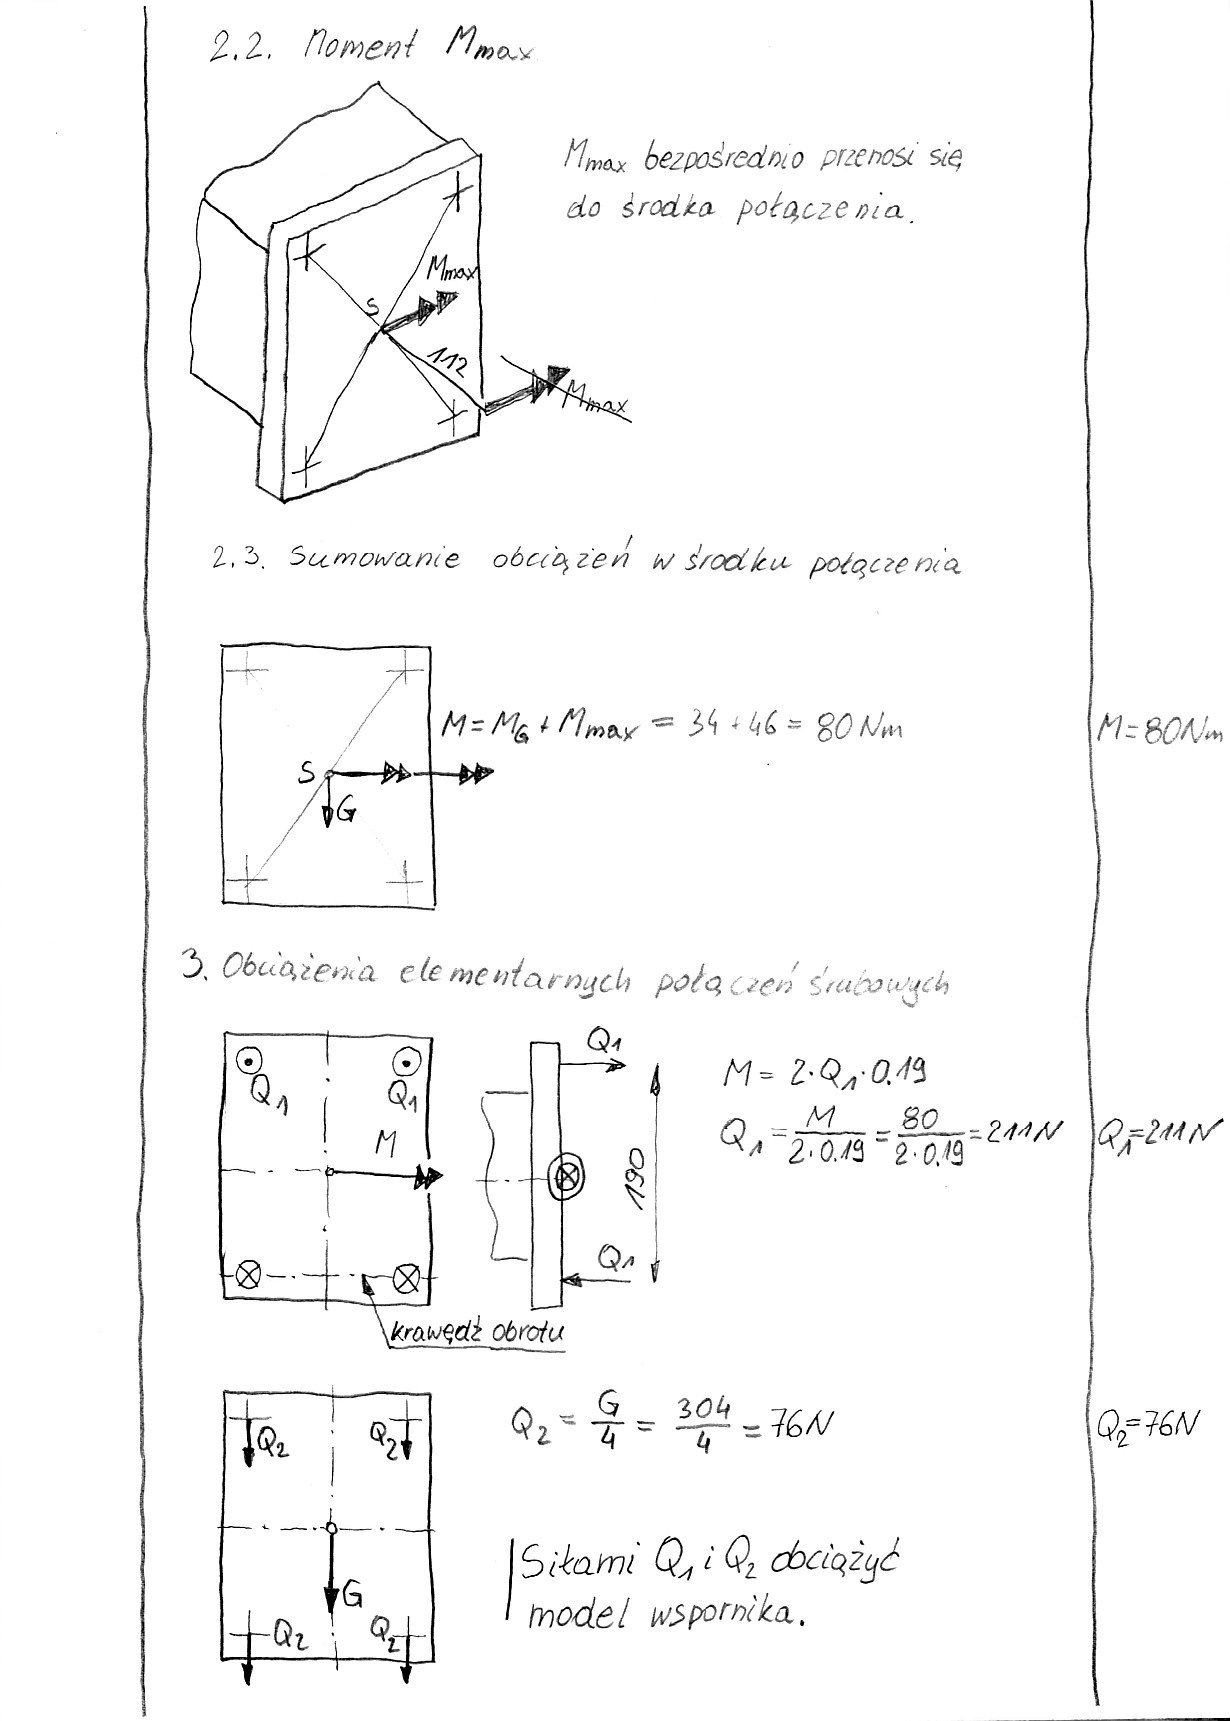 2.2. Moment Mmax
Mmax bezpośrednio przenosi się
do środka połączenia.
Mmax
S
112
Mmax
2.3. Sumowanie obciążeń w środku połączenia
M = MG + Mmax = 34 + 46 = 80 Nm
M = 80Nm
S
G
3. Obciążenia elementarnych połączeń śrubowych
Q1
Q1
M
krawędź obrotu
Q1
190
Q1
M = 2·Q1·0.19
Q1 = M / 2·0.19 = 80 / 2·0.19 = 211N
Q1=211N
Q2
Q2
G
Q2
Q2
Q2 = G / 4 = 304 / 4 = 76N
Q2=76N
Siłami Q1 i Q2 obciążyć
model wspornika.